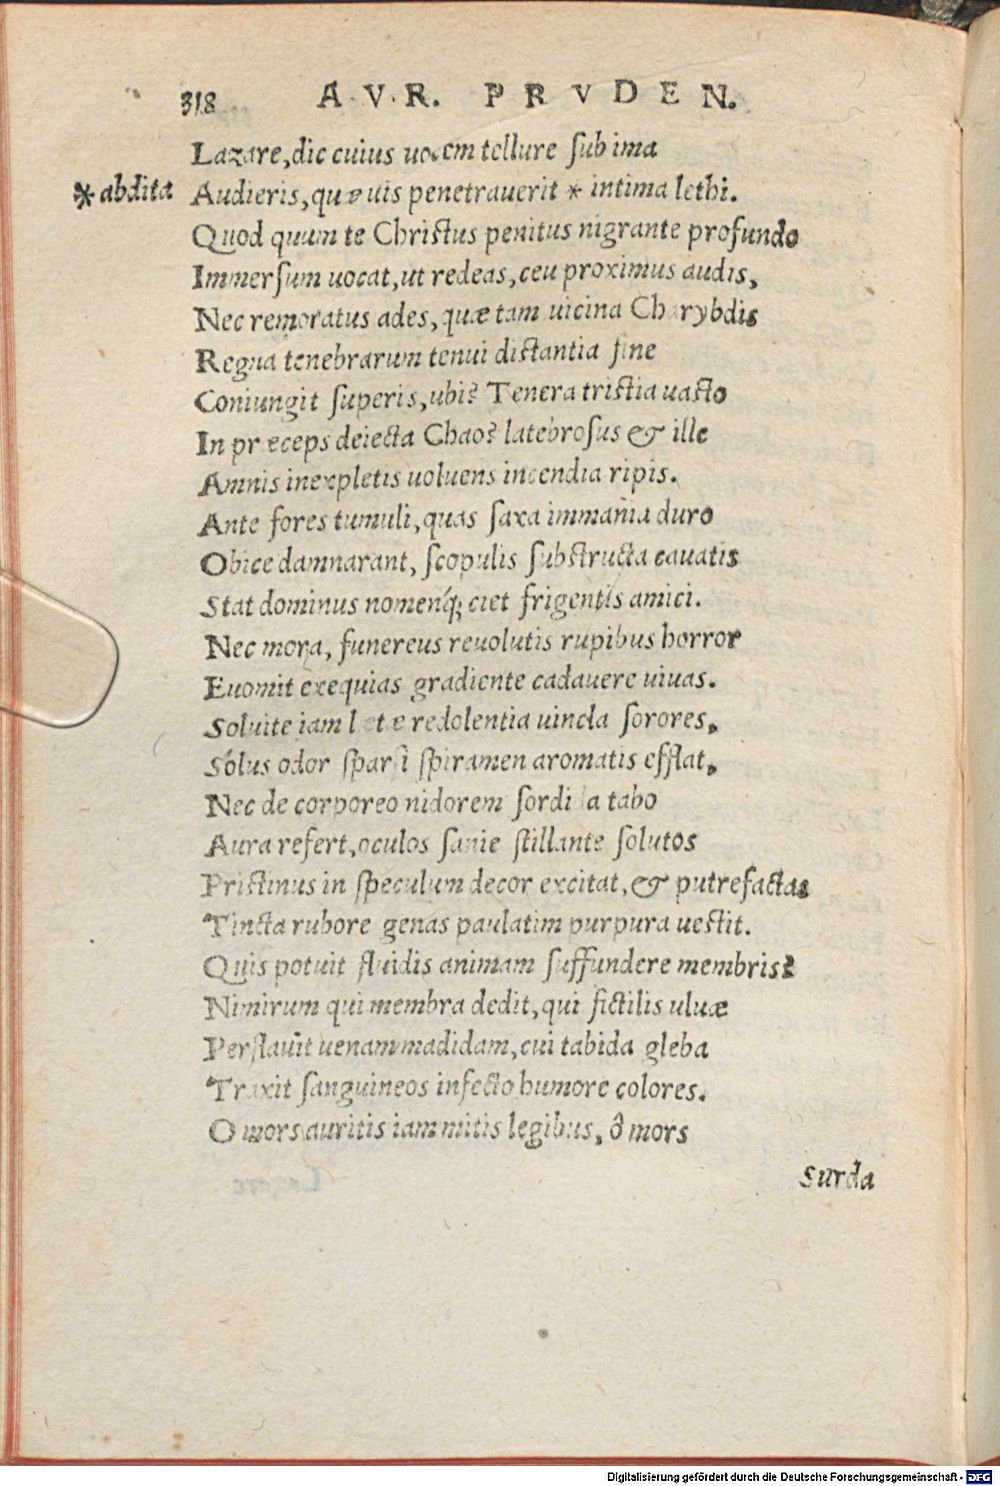 318 AVR. PRVDEN.
Lazare, dic cuius uocem tellure sub ima
* abdita Audieris, quæ uis penetrauerit * intima lethi.
Quod quum te Christus penitus nigrante profundo
Immersum uocat, ut redeas, ceu proximus audis,
Nec remoratus ades, quæ tam uicina Charybdis
Regna tenebrarum tenui distantia fine
Coniungit superis, ubi? Tenera tristia uasto
In præceps deiecta Chao? latebrosus & ille
Amnis inexpletis uoluens incendia ripis.
Ante fores tumuli, quas saxa immania duro
Obice damnarant, scopulis substructa cauatis
Stat dominus nomenq́; ciet frigentis amici.
Nec mora, funereus reuolutis rupibus horror
Euomit exequias gradiente cadauere uiuas.
Soluite iam lætæ redolentia uincla sorores,
Sólus odor sparsi spiramen aromatis efflat,
Nec de corporeo nidorem sordida tabo
Aura refert, oculos sanie stillante solutos
Pristinus in speculum decor excitat, & putrefactas
Tincta rubore genas paulatim purpura uestit.
Quis potuit fluidis animam suffundere membris?
Nimirum qui membra dedit, qui fictilis uluæ
Perflauit uenam madidam, cui tabida gleba
Traxit sanguineos infecto humore colores.
O mors auritis iam mitis legibus, ô mors
Surda
Digitalisierung gefördert durch die Deutsche Forschungsgemeinschaft - DFG